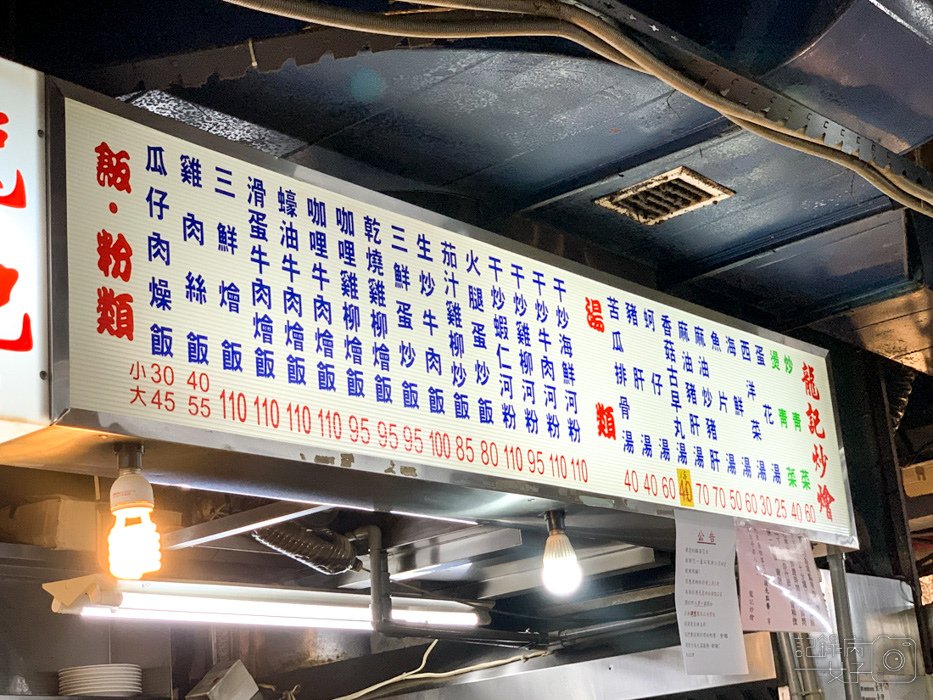 飯·粉類
瓜仔肉燥飯 小30 大45
雞肉絲飯 40 55
三鮮燴飯 110
滑蛋牛肉燴飯 110
蠔油牛肉燴飯 110
咖哩牛肉燴飯 110
咖哩雞柳燴飯 95
乾燒雞柳燴飯 95
三鮮蛋炒飯 95
生炒牛肉飯 100
茄汁雞柳炒飯 85
火腿蛋炒飯 80
干炒蝦仁河粉 110
干炒雞柳河粉 95
干炒牛肉河粉 110
干炒海鮮河粉 110
湯類
苦瓜排骨湯 40
豬肝湯 40
蚵仔湯 60
香菇古早丸湯 40
麻油豬肝湯 70
麻油炒豬肝 70
魚片湯 50
海鮮湯 60
西洋菜湯 30
蛋花湯 25
燙青菜 40
炒青菜 60
龍記炒燴
公告